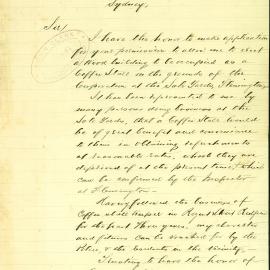 Sydney,
Sir/
I have the honor to make application
for your permission to allow me to erect
a Wood building to be occupied as a
Coffee Stall on the grounds of the
Corporation at the Sale Yards, Flemington.
It has been represented to me by
many persons doing business at the
Sale Yards, that a Coffee Stall would
be of great benefit and convenience
to them in obtaining refreshments
at reasonable rates, which they are
deprived of at the present time, which
can be confirmed by the Inspector
at Flemington.
Having followed the business of
Coffee Stall keeper in Regent Street Redfern
for the past three years, my character
and fitness can be vouched for by the
Police, & the residents in the vicinity.
Trusting to have the honor of